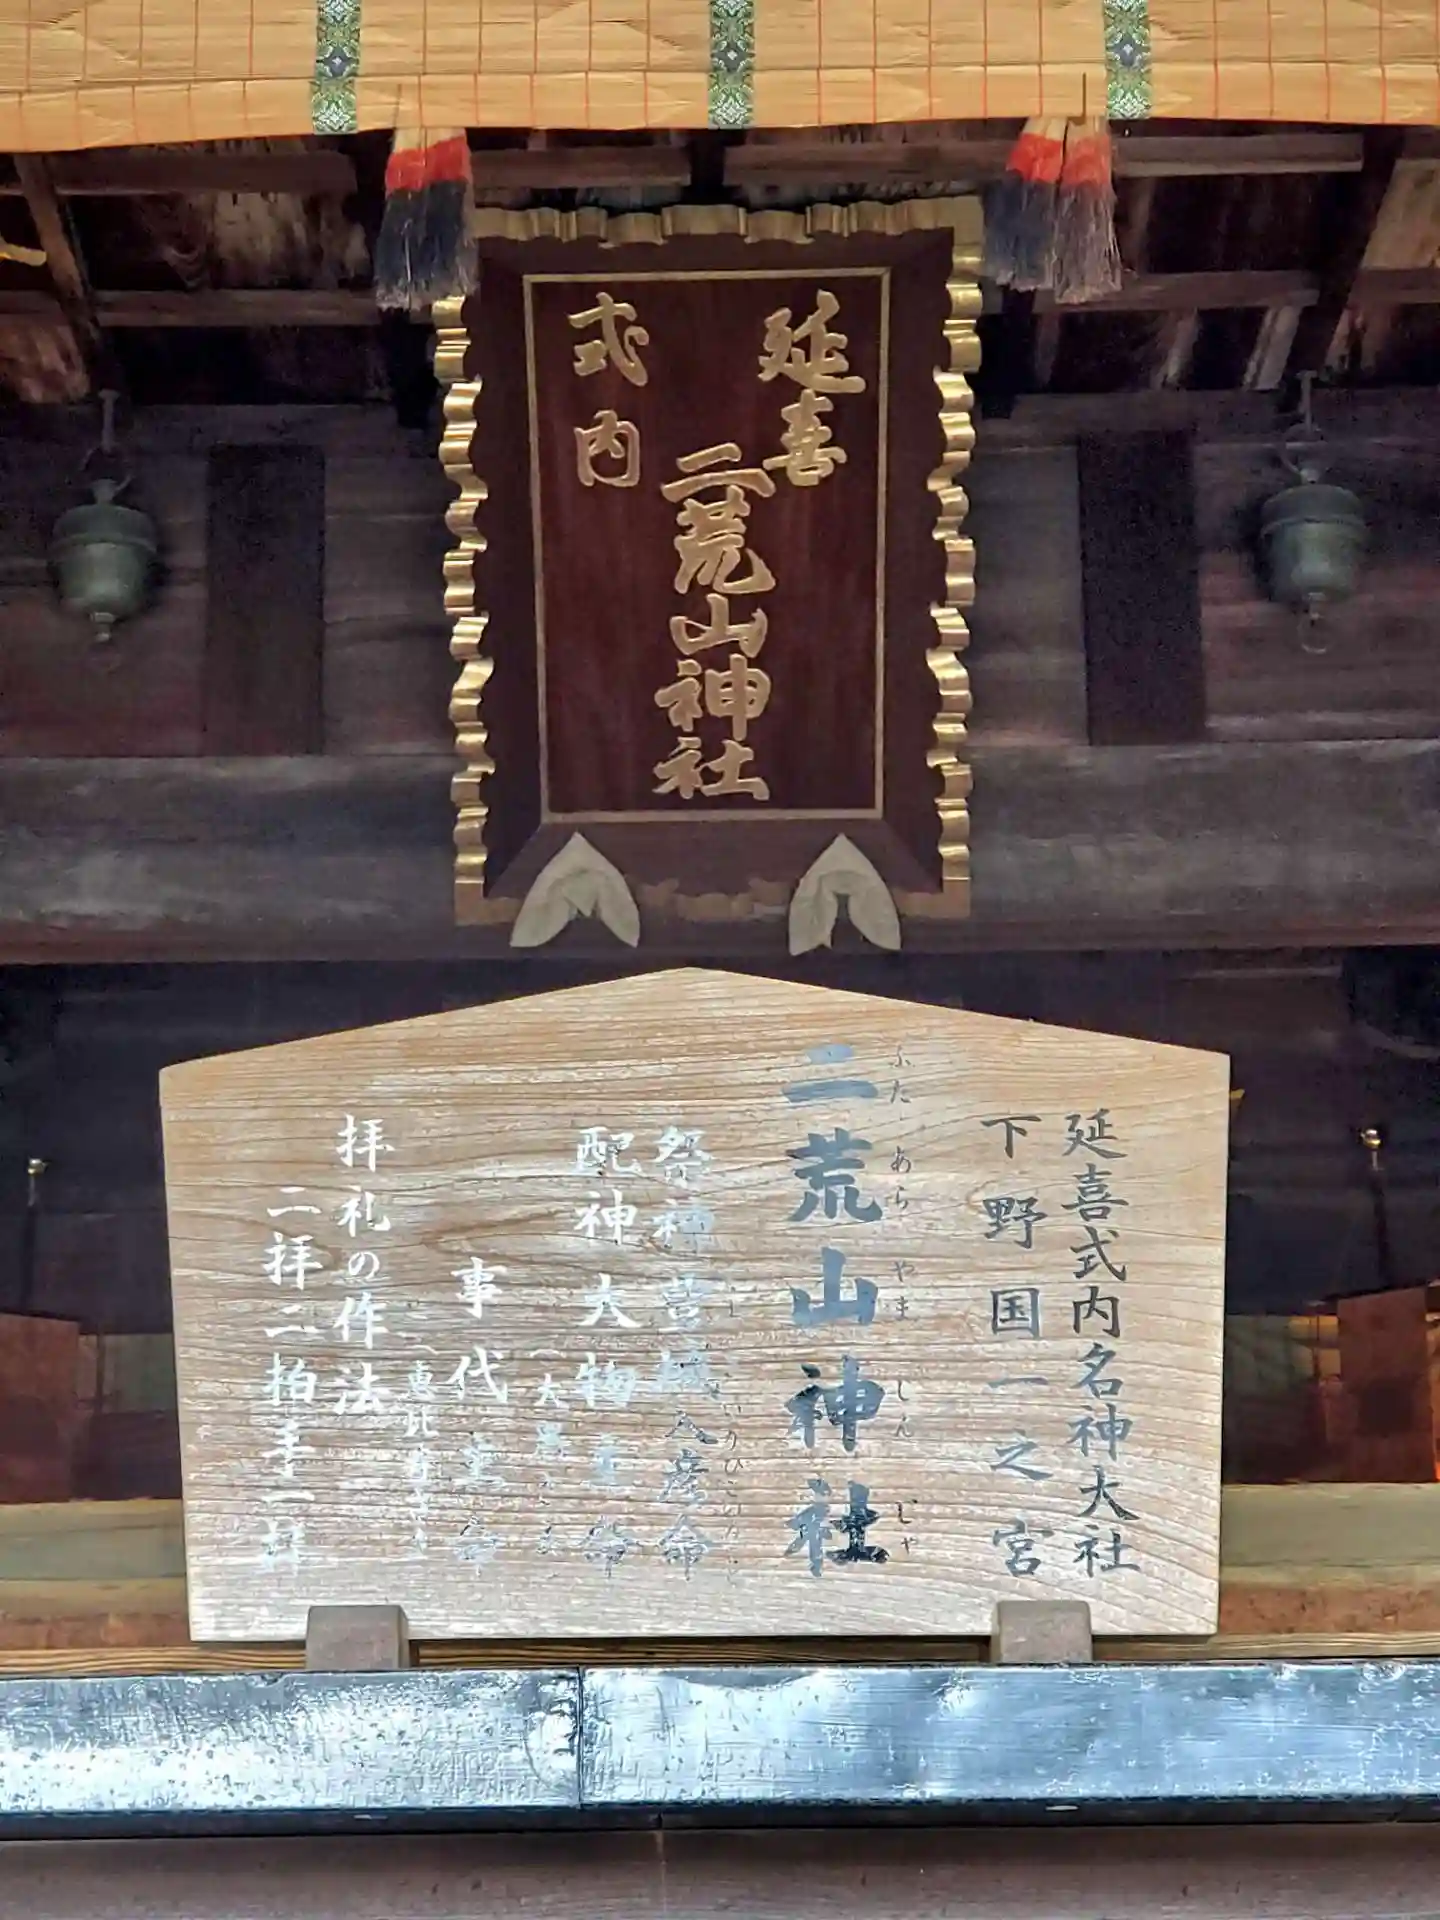 延喜
式内
二荒山神社
延喜式内名神大社
下野国一之宮
ふた あら やま じん じゃ
二荒山神社
祭神 豊城入彦命
配神 大物主命
事代主命
拝礼の作法
二拝二拍手一拝